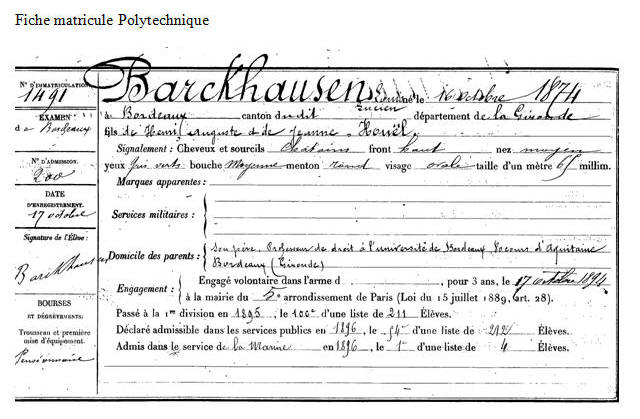 Fiche matricule Polytechnique
N° D'IMMATRICULATION
1491
EXAMEN
d e Bordeaux
N° D'ADMISSION
200
DATE
D'ENREGISTREMENT.
17 octobre
Signature de l'Élève :
Barckhausen
BOURSES
ET DÉGRÈVEMENTS:
Trousseau et première
mise d'équipement.
Pensionnaire
Barckhausen né le 16 octobre 1874
Lucien
à Bordeaux canton dudit département de la Gironde
fils de Henri Auguste et de Jeanne Houël
Signalement : Cheveux et sourcils Châtains front haut nez moyen
yeux gris verts bouche Moyenne menton rond visage ovale taille d'un mètre 65 millim.
Marques apparentes :
Services militaires :
Domicile des parents : Son père, Professeur de droit à l'université de Bordeaux, cours d'Aquitaine
Bordeaux (Gironde)
Engagement : Engagé volontaire dans l'arme d , pour 3 ans, le 17 octobre 1894
à la mairie du 5e arrondissement de Paris (Loi du 15 juillet 1889, Art. 28).
Passé à la 1re division en 1895, le 100e d'une liste de 211 Élèves.
Déclaré admissible dans les services publics en 1896, le 54e d'une liste de Élèves.
Admis dans le service de la Marine en 1896, le 1er d'une liste de 4 Élèves.